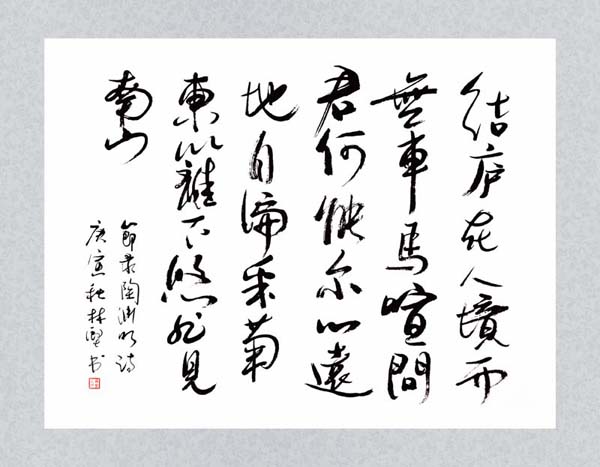 结庐在人境而
無車馬喧問
君何能尔心遠
地自偏采菊
東籬下悠然見
南山
節录陶渊明诗
庚寅秋林书